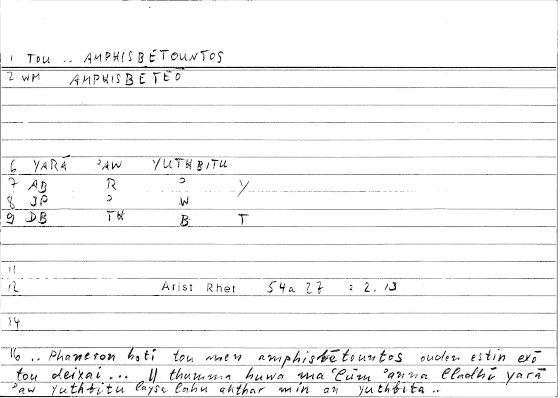 1 TOU .. AMPHISBĒTOUNTOS
2 WM AMPHISBĒTEŌ
6 YARĀ ʾAW YUTHBITU
7 AB R ʾ Y
8 JP ʾ W
9 DB TH B T
11
12 Arist Rhet 54a 27 : 2.13
14
16 .. Phaneron hoti tou men amphisbētountos ouden estin exō
tou deixai ... // thumma huwa maʿlūm ʾanna lladhī yarā
ʾaw yuthbitu laysa lahu akthar min an yuthbita ..